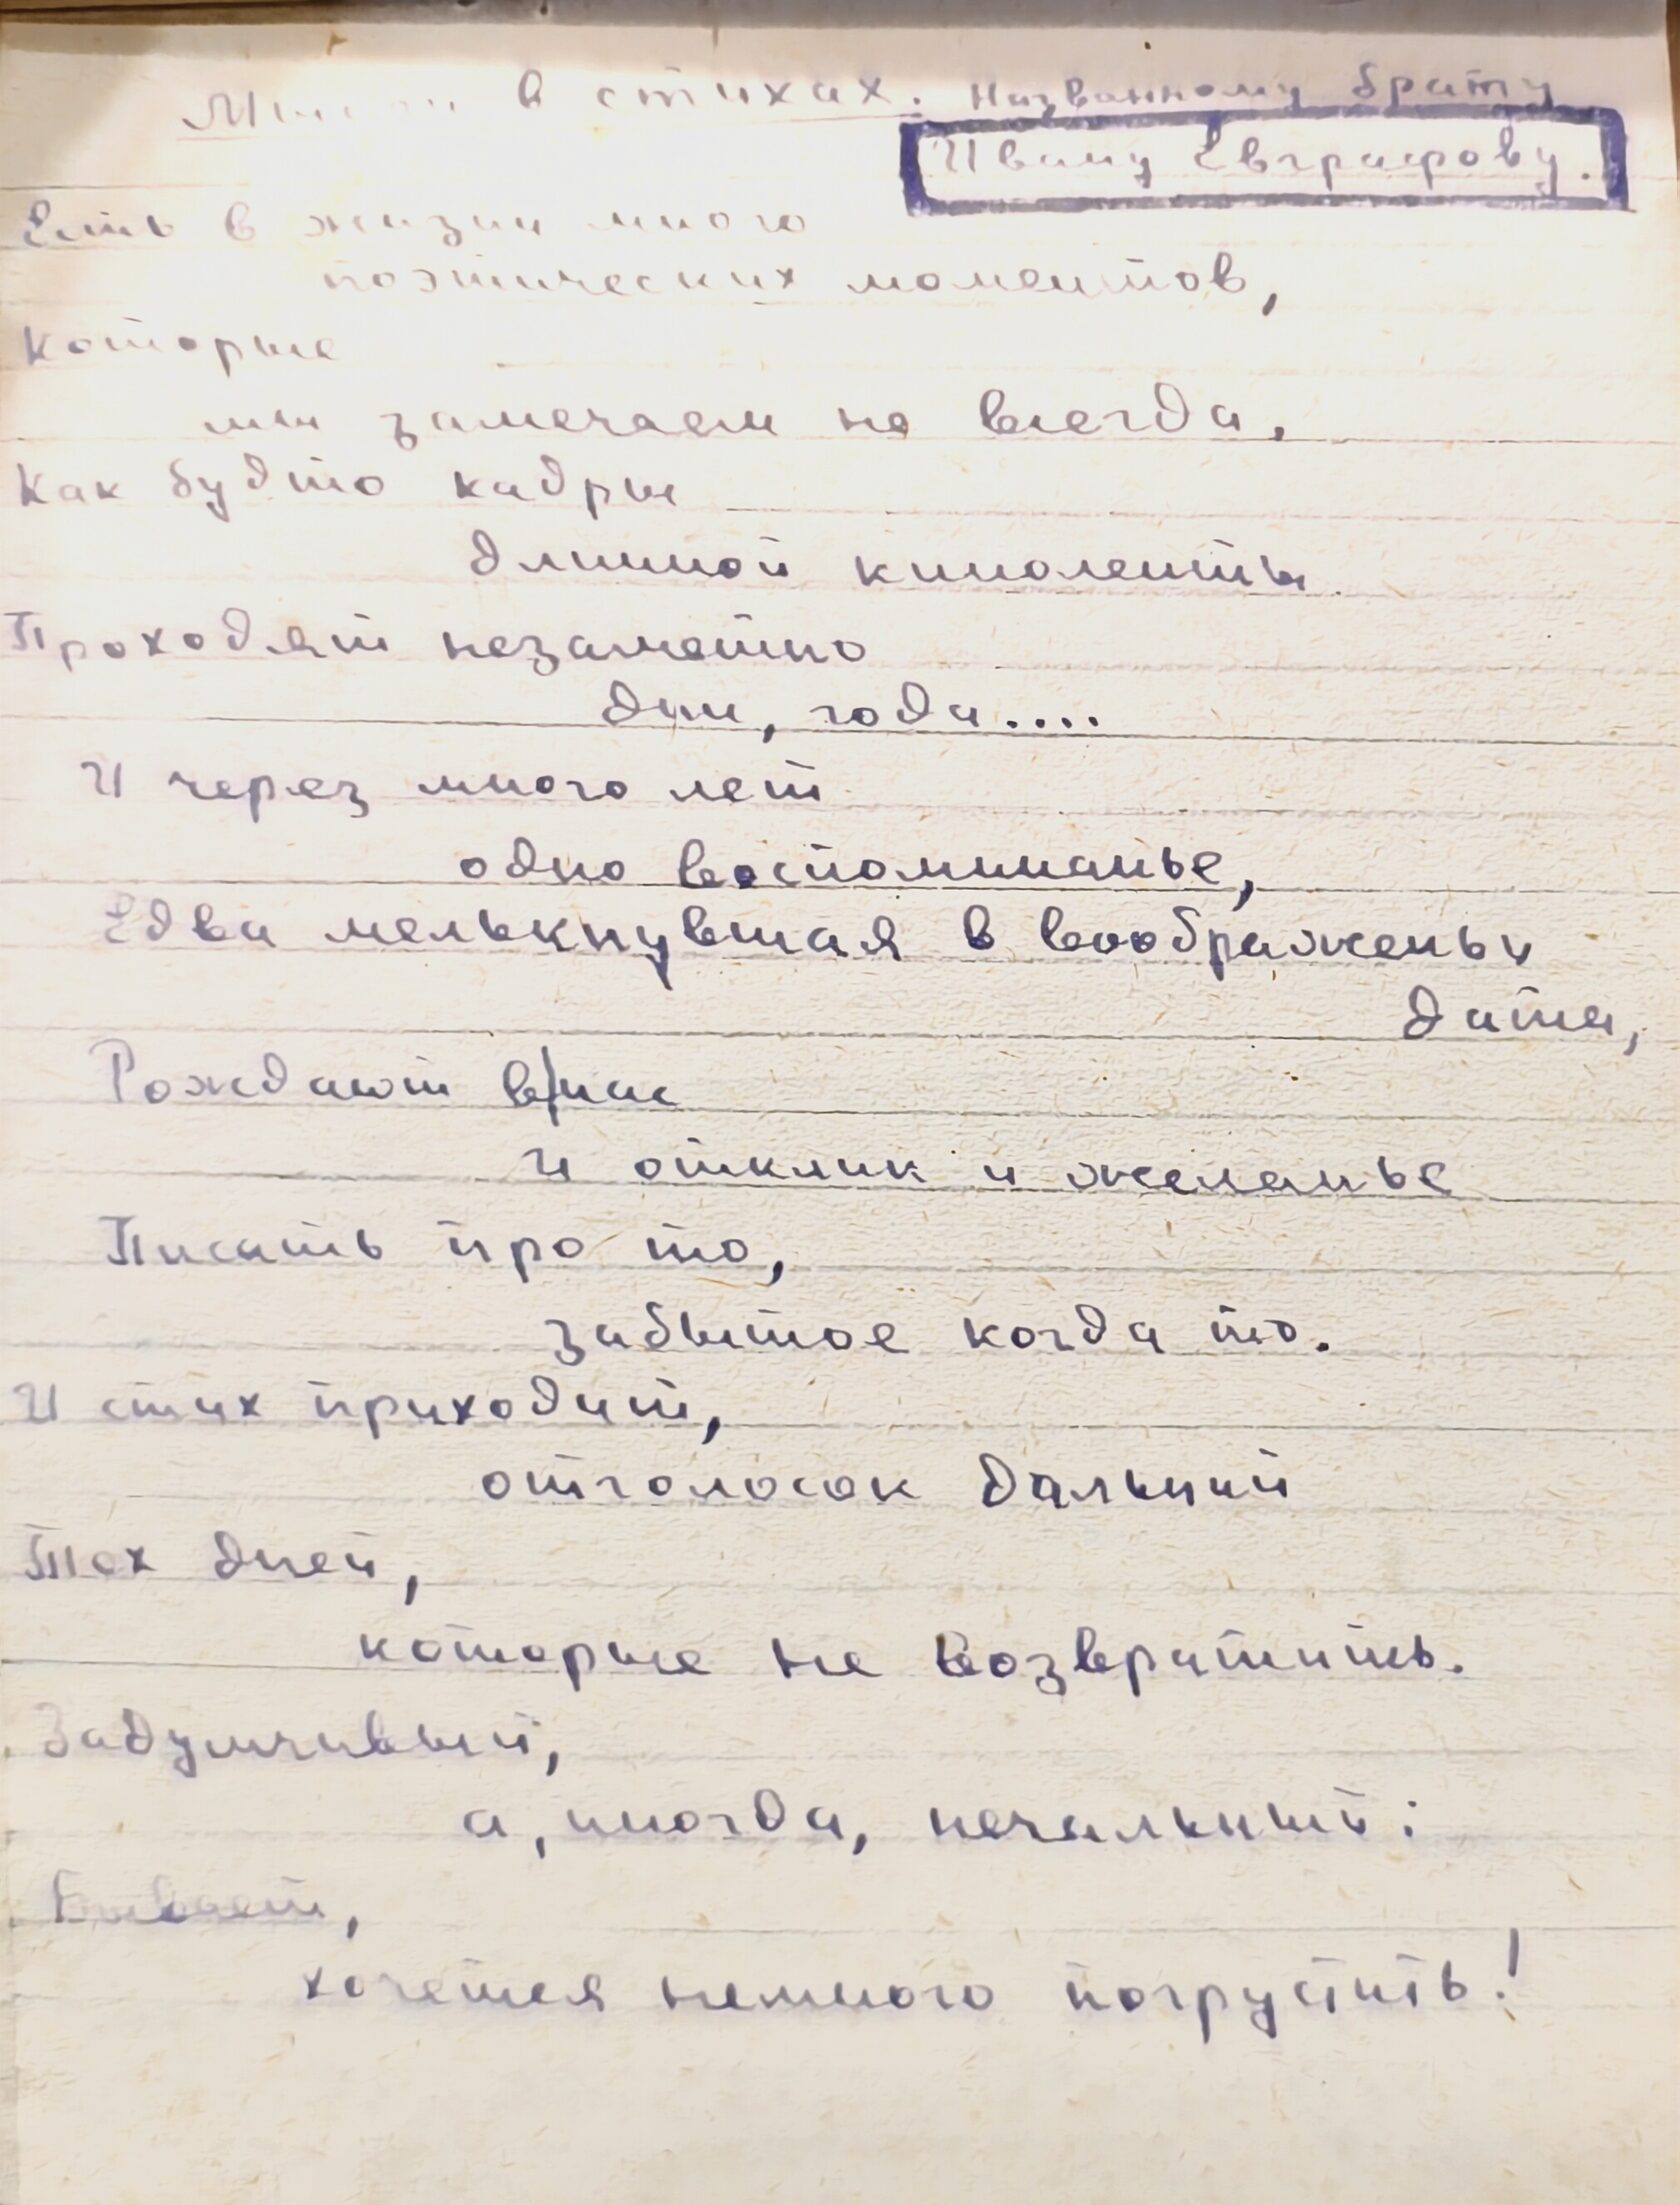 Мысли в стихах. Названному брату
Ивану Евграфову.
Есть в жизни много
поэтических моментов,
Которые
мы замечаем не всегда.
Как будто кадры
длинной киноленты
Проходят незаметно
дни, года....
И через много лет
одно воспоминанье,
Едва мелькнувшая в воображеньи
дата,
Рождают в/нас
и отклик и желанье
Писать про то,
забытое когда то.
И стих приходит,
отголосок дальний
Тех дней,
которые не возвратить.
Задумчивый,
а, иногда, печальный:
Бывает,
хочется немного погрустить!